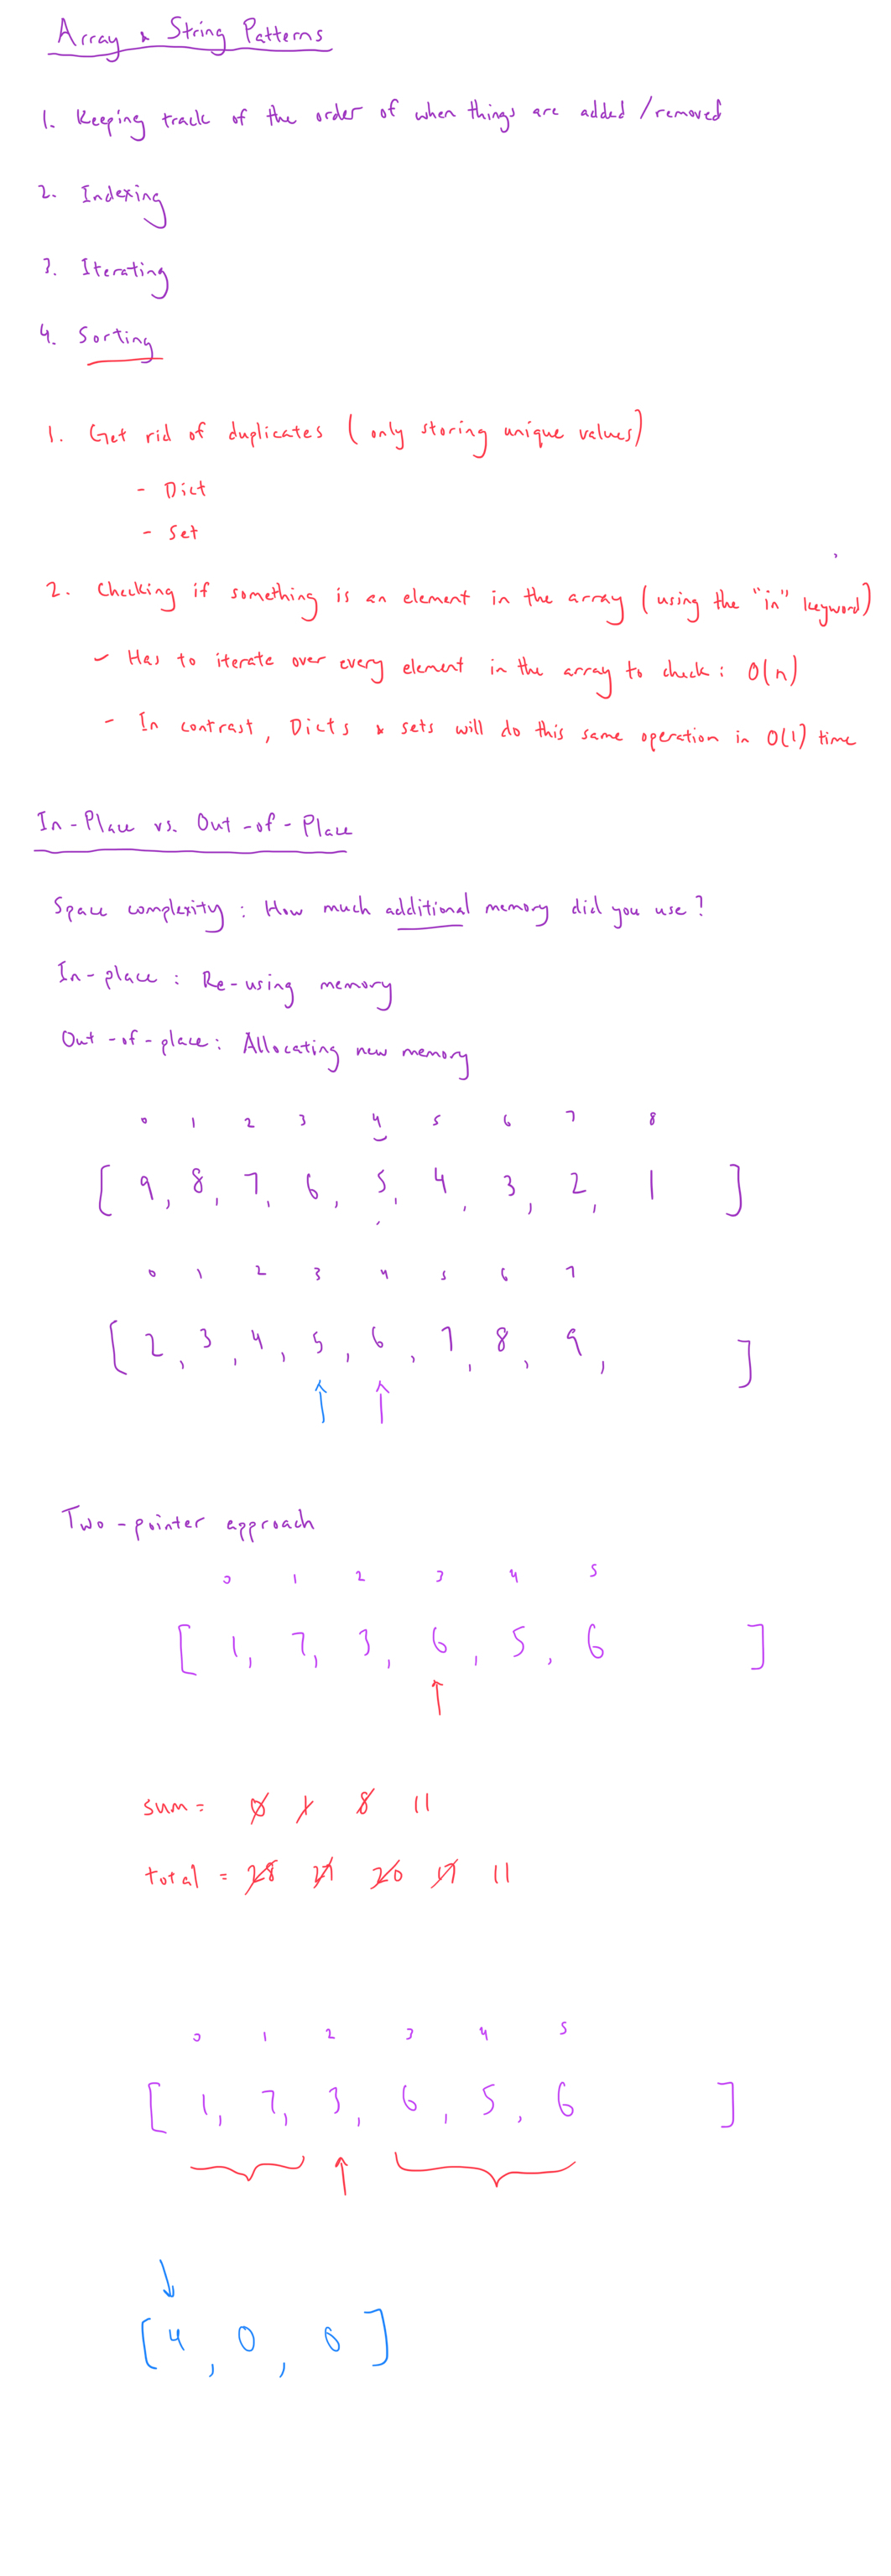 Array & String Patterns
1. Keeping track of the order of when things are added/removed
2. Indexing
3. Iterating
4. Sorting
1. Get rid of duplicates (only storing unique values)
- Dict
- Set
2. Checking if something is an element in the array (using the "in" keyword)
- Has to iterate over every element in the array to check: O(n)
- In contrast, Dicts & sets will do this same operation in O(1) time
In-Place vs. Out-of-Place
Space complexity: How much additional memory did you use?
In-place: Re-using memory
Out-of-place: Allocating new memory
0 1 2 3 4 5 6 7 8
[ 9, 8, 7, 6, 5, 4, 3, 2, 1 ]
0 1 2 3 4 5 6 7
[ 2, 3, 4, 5, 6, 7, 8, 9, ]
Two-pointer approach
0 1 2 3 4 5
[ 1, 7, 3, 6, 5, 6 ]
sum = 0 1 8 11
total = 28 27 20 17 11
0 1 2 3 4 5
[ 1, 7, 3, 6, 5, 6 ]
[ 4, 0, 0 ]